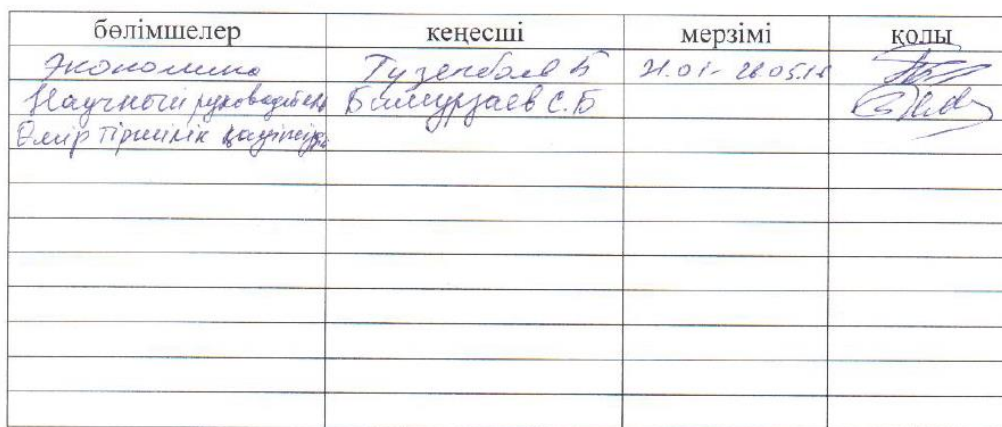 бөлімшелер кеңесші мерзімі қолы
Экономика Тузелбаев Б 21.01-26.05.16
Научный руководитель Баймурзаев С.Б
Өмір тіршілік қауіпсізд